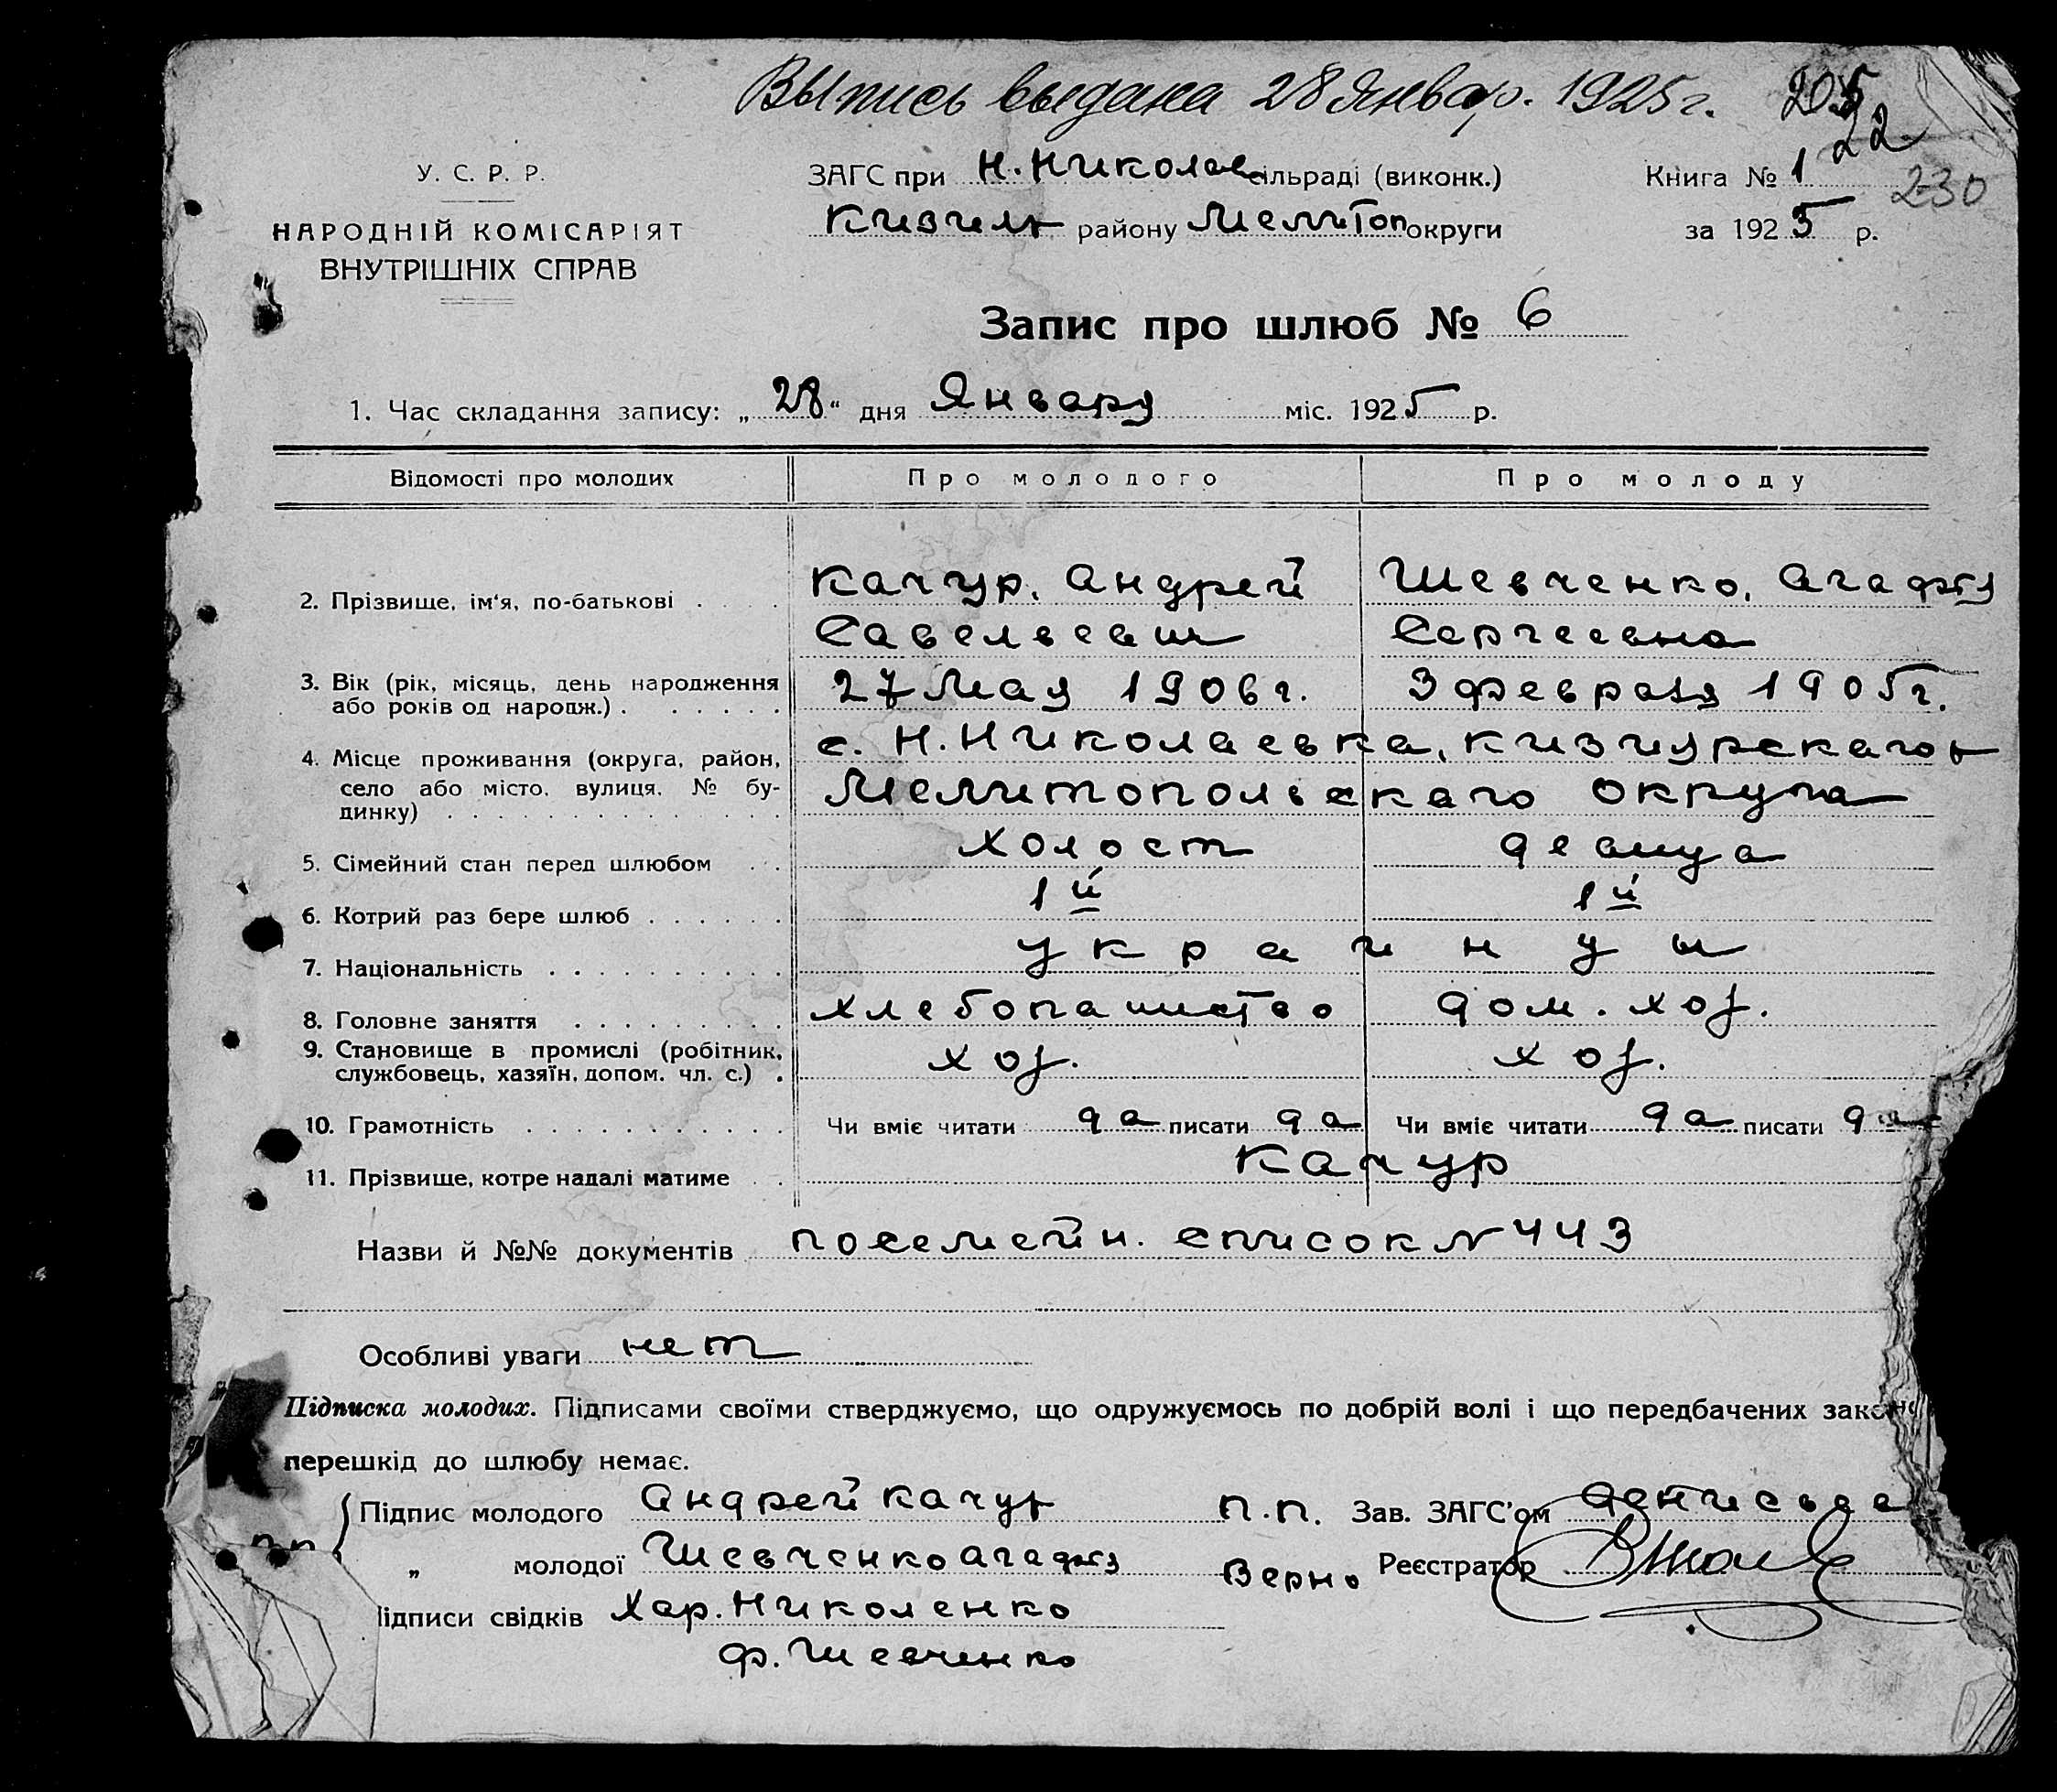 Выпись выдана 28 Январ. 1925 г. 205
22
У. С. Р. Р. ЗАГС при Н. Николаев сільраді (виконк.) Книга № 1 230
НАРОДНІЙ КОМІСАРІЯТ Кизиль району Мелитоп округи за 1925 р.
ВНУТРІШНІХ СПРАВ
Запис про шлюб № 6
1. Час складання запису: „28“ дня Января міс. 1925 р.
Відомості про молодих Про молодого Про молоду
2. Прізвище, ім'я, по-батькові . . . . Качур, Андрей Шевченко, Агафія
Савельевич Сергеевна
3. Вік (рік, місяць, день народження 27 Мая 1906 г. 3 февраля 1905 г.
або років од народж.) . . . . . .
4. Місце проживання (округа, район, с. Н. Николаевка,
село або місто, вулиця, № бу- Мелитопольскаго округа
динку) . . . . . . . . . . . . .
5. Сімейний стан перед шлюбом . . холост девица
6. Котрий раз бере шлюб . . . . . . 1й 1й
7. Національність . . . . . . . . . украинцы
8. Головне заняття . . . . . . . . . хлебопашество дом. хоз.
9. Становище в промислі (робітник, хоз. хоз.
службовець, хазяїн, допом. чл. с.) .
10. Грамотність . . . . . . . . . . . Чи вміє читати да писати да Чи вміє читати да писати да
11. Прізвище, котре надалі матиме . . Качур
Назви й №№ документів посемейн. список N 443
Особливі уваги нет
Підписка молодих. Підписами своїми стверджуємо, що одружуємось по добрій волі і що передбачених законо
перешкід до шлюбу немає.
Підпис молодого Андрей Качур п.п. Зав. ЗАГС'ом
п п „ молодої Шевченко Агафія Верно Реєстратор
ідписи свідків Хар. Николенко
Ф. Шевченко